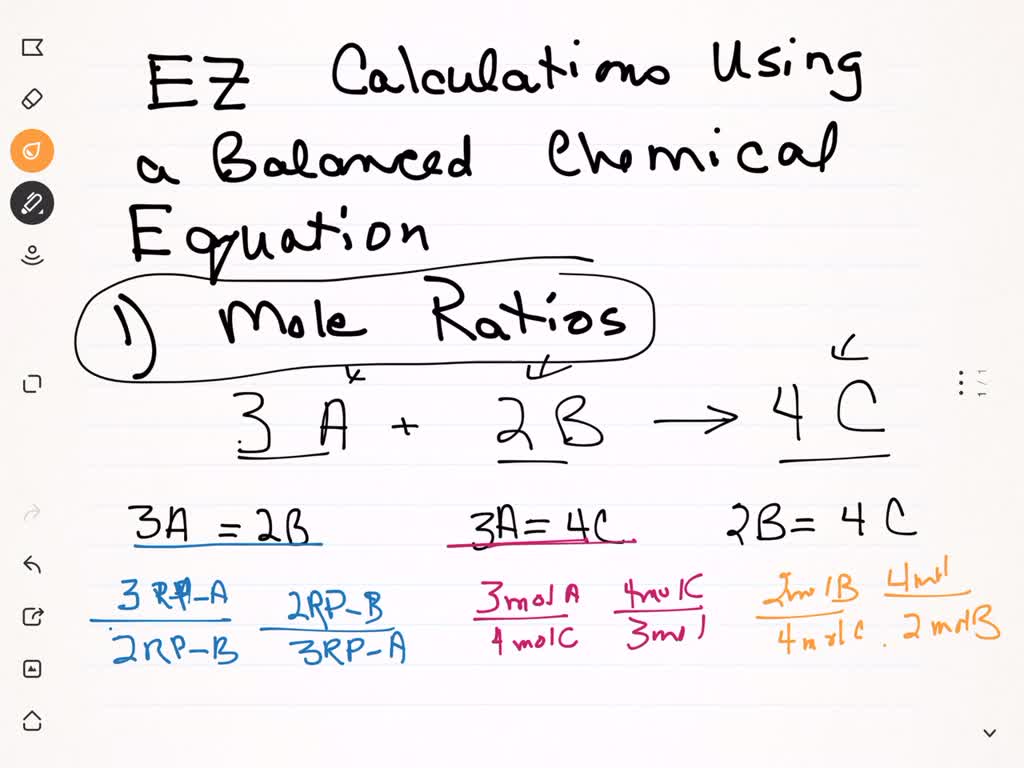 EZ Calculations Using
a Balanced Chemical
Equation
1) Mole Ratios
3 A + 2 B → 4 C
3A = 2B 3A = 4C 2B = 4 C
3 RP-A / 2RP-B 2RP-B / 3RP-A 3 mol A / 4 molC 4molC / 3mol 2molB / 4 molC. 4mol / 2 molB
1 / 1